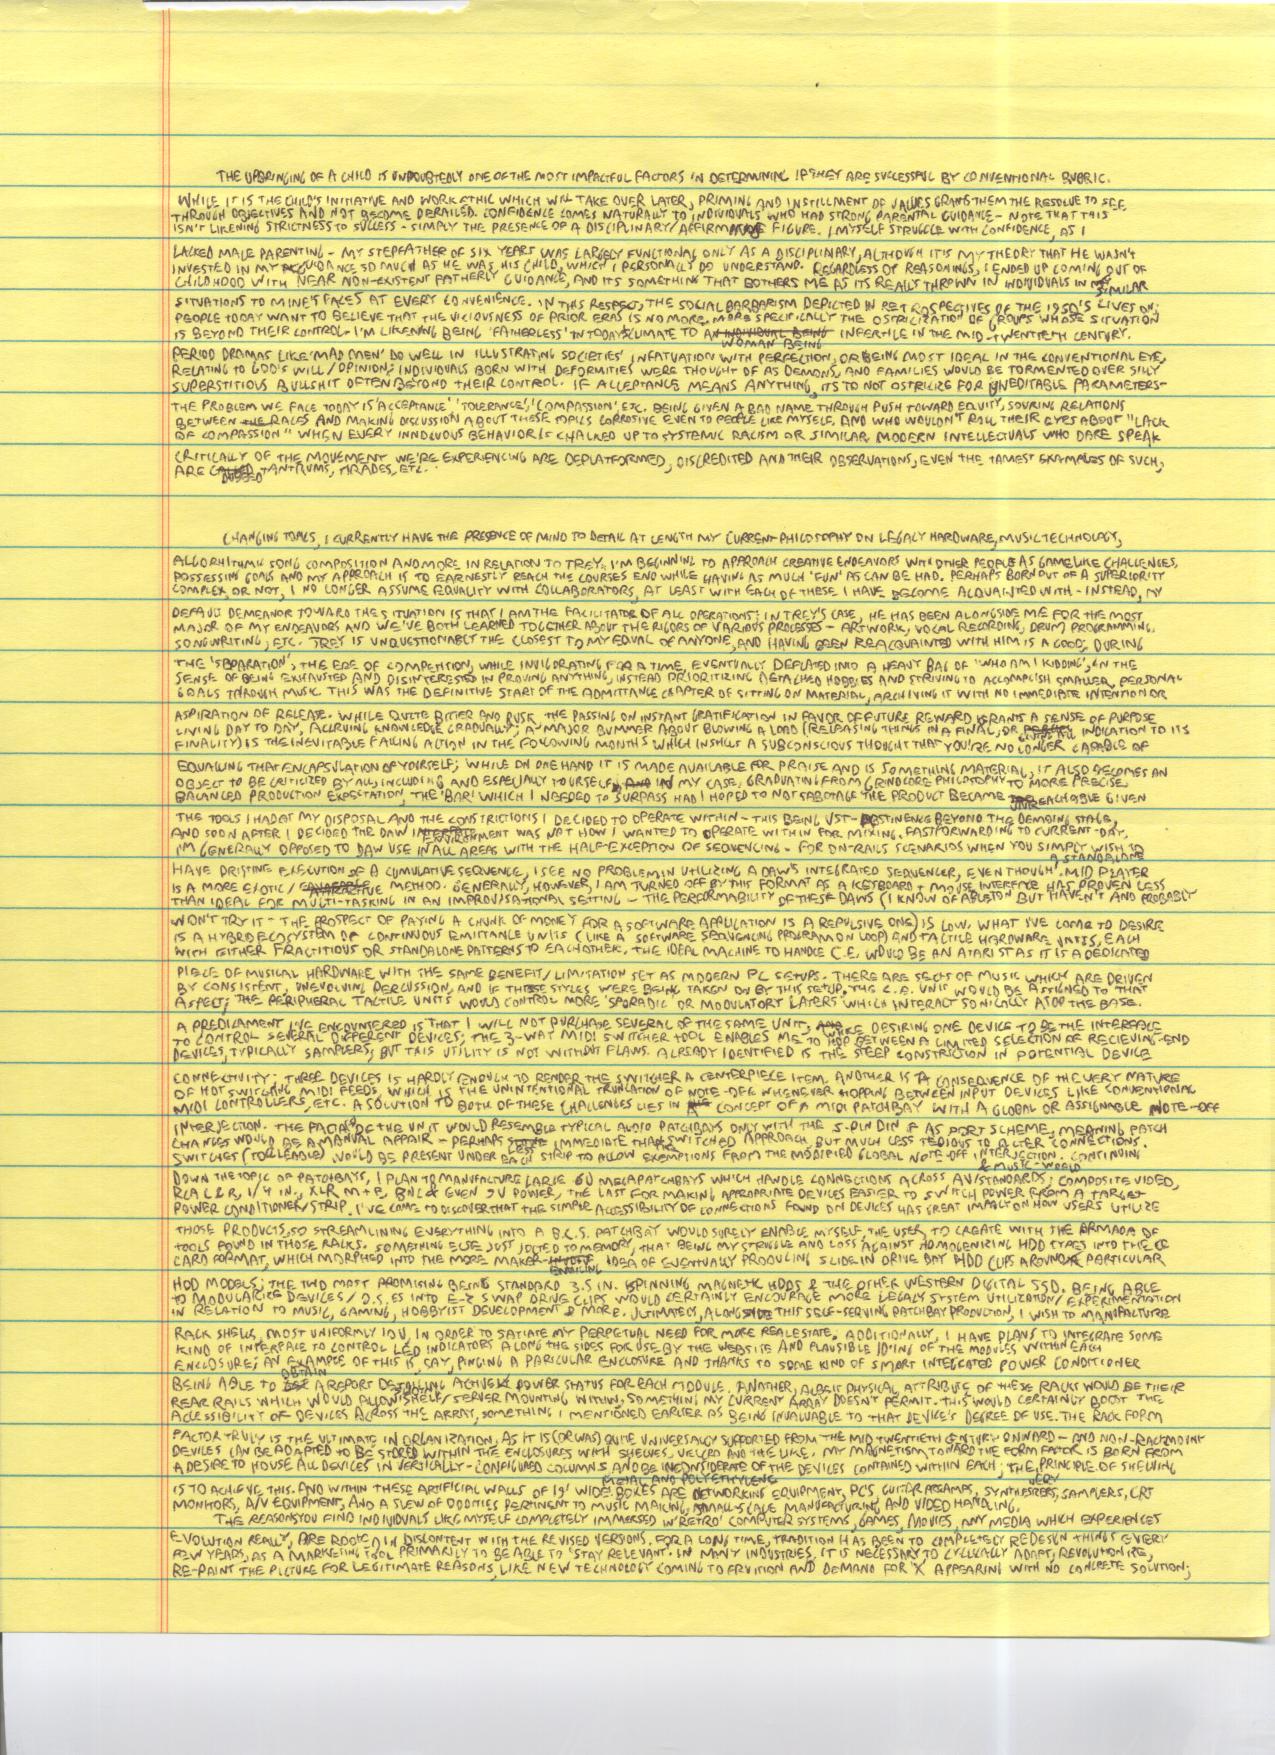 THE UPBRINGING OF A CHILD IS UNDOUBTEDLY ONE OF THE MOST IMPACTFUL FACTORS IN DETERMINING IF THEY ARE SUCCESSFUL BY CONVENTIONAL RUBRIC.
WHILE IT IS THE CHILD'S INITIATIVE AND WORK ETHIC WHICH WILL TAKE OVER LATER, PRIMING AND INSTILLMENT OF VALUES GRANTS THEM THE RESOLVE TO SEE
THROUGH OBJECTIVES AND NOT BECOME DERAILED. CONFIDENCE COMES NATURALLY TO INDIVIDUALS WHO HAD STRONG PARENTAL GUIDANCE - NOTE THAT THIS
ISN'T LIKENING STRICTNESS TO SUCCESS - SIMPLY THE PRESENCE OF A DISCIPLINARY/AFFIRMATIVE FIGURE. I MYSELF STRUGGLE WITH CONFIDENCE, AS I
LACKED MALE PARENTING - MY STEPFATHER OF SIX YEARS WAS LARGELY FUNCTIONAL ONLY AS A DISCIPLINARY, ALTHOUGH IT IS MY THEORY THAT HE WASN'T
INVESTED IN MY GUIDANCE SO MUCH AS HE WAS, HIS CHILD, WHICH I PERSONALLY DO UNDERSTAND. REGARDLESS OF REASONINGS, I ENDED UP COMING OUT OF
CHILDHOOD WITH NEAR NON-EXISTENT FATHERLY GUIDANCE, AND ITS SOMETHING THAT BOTHERS ME AS ITS REALLY THROWN IN INDIVIDUALS IN SIMILAR
SITUATIONS TO MINE'S FACES AT EVERY CONVENIENCE. IN THIS RESPECT, THE SOCIAL BARBARISM DEPICTED IN RETROSPECTIVES OF THE 1950'S LIVES ON;
PEOPLE TODAY WANT TO BELIEVE THAT THE VICIOUSNESS OF PRIOR ERAS IS NO MORE, MORE SPECIFICALLY THE OSTRICIZATION OF GROUPS WHOSE SITUATION
IS BEYOND THEIR CONTROL - I'M LIKENING BEING 'FATHERLESS' IN TODAY'S CLIMATE TO A WOMAN BEING INFERTILE IN THE MID-TWENTIETH CENTURY.
PERIOD DRAMAS LIKE 'MAD MEN' DO WELL IN ILLUSTRATING SOCIETIES' INFATUATION WITH PERFECTION, OR BEING MOST IDEAL IN THE CONVENTIONAL EYE,
RELATING TO GOD'S WILL/OPINION; INDIVIDUALS BORN WITH DEFORMITIES WERE THOUGHT OF AS DEMONS, AND FAMILIES WOULD BE TORMENTED OVER SILLY
SUPERSTITIOUS BULLSHIT OFTEN BEYOND THEIR CONTROL. IF ACCEPTANCE MEANS ANYTHING, ITS TO NOT OSTRICIZE FOR UNEDITABLE PARAMETERS-
THE PROBLEM WE FACE TODAY IS 'ACCEPTANCE' 'TOLERANCE', 'COMPASSION' ETC. BEING GIVEN A BAD NAME THROUGH PUSH TOWARD EQUITY, SOURING RELATIONS
BETWEEN RACES AND MAKING DISCUSSION ABOUT THESE TOPICS CORROSIVE EVEN TO PEOPLE LIKE MYSELF. AND WHO WOULDN'T ROLL THEIR EYES ABOUT "LACK
OF COMPASSION" WHEN EVERY INNOCUOUS BEHAVIOR IS CHALKED UP TO SYSTEMIC RACISM OR SIMILAR. MODERN INTELLECTUALS WHO DARE SPEAK
CRITICALLY OF THE MOVEMENT WE'RE EXPERIENCING ARE DEPLATFORMED, DISCREDITED AND THEIR OBSERVATIONS, EVEN THE TAMEST EXAMPLES OF SUCH,
ARE DUBBED TANTRUMS, TIRADES, ETC.
CHANGING TOPICS, I CURRENTLY HAVE THE PRESENCE OF MIND TO DETAIL AT LENGTH MY CURRENT PHILOSOPHY ON LEGACY HARDWARE, MUSIC TECHNOLOGY,
ALGORHITHMIC SONG COMPOSITION AND MORE IN RELATION TO TREY. I'M BEGINNING TO APPROACH CREATIVE ENDEAVORS WITH OTHER PEOPLE AS GAMELIKE CHALLENGES,
POSSESSING GOALS AND MY APPROACH IS TO EARNESTLY REACH THE COURSES END WHILE HAVING AS MUCH 'FUN' AS CAN BE HAD. PERHAPS BORN OUT OF A SUPERIORITY
COMPLEX OR NOT, I NO LONGER ASSUME EQUALITY WITH COLLABORATORS, AT LEAST WITH EACH OF THESE I HAVE BECOME ACQUAINTED WITH - INSTEAD, MY
DEFAULT DEMEANOR TOWARD THE SITUATION IS THAT I AM THE FACILITATOR OF ALL OPERATIONS; IN TREY'S CASE, HE HAS BEEN ALONGSIDE ME FOR THE MOST
MAJOR OF MY ENDEAVORS AND WE'VE BOTH LEARNED TOGETHER ABOUT THE RIGORS OF VARIOUS PROCESSES - ARTWORK, VOCAL RECORDING, DRUM PROGRAMMING,
SONGWRITING, ETC. TREY IS UNQUESTIONABLY THE CLOSEST TO MY EQUAL OF ANYONE, AND HAVING BEEN REACQUAINTED WITH HIM IS A GOOD; DURING
THE 'SEPARATION', THE EDGE OF COMPETITION, WHILE INVIGORATING FOR A TIME, EVENTUALLY DEFLATED INTO A HEAVY BAG OF 'WHO AM I KIDDING', IN THE
SENSE OF BEING EXHAUSTED AND DISINTERESTED IN PROVING ANYTHING, INSTEAD PRIORITIZING DETACHED HOBBIES AND STRIVING TO ACCOMPLISH SMALLER, PERSONAL
GOALS THROUGH MUSIC. THIS WAS THE DEFINITIVE START OF THE ADMITTANCE CHAPTER OF SITTING ON MATERIAL, ARCHIVING IT WITH NO IMMEDIATE INTENTION OR
ASPIRATION OF RELEASE. WHILE QUITE BITTER AND THE PASSING ON INSTANT GRATIFICATION IN FAVOR OF FUTURE REWARD GRANTS A SENSE OF PURPOSE
LIVING DAY TO DAY, ACCRUING KNOWLEDGE GRADUALLY; A MAJOR BUMMER ABOUT BLOWING A LOAD (RELEASING THINGS IN A FINAL, OR INDICATION TO ITS
FINALITY) IS THE INEVITABLE FALLING ACTION IN THE FOLLOWING MONTHS WHICH INSTILLS A SUBCONSCIOUS THOUGHT THAT YOU'RE NO LONGER CAPABLE OF
EQUALLING THAT ENCAPSULATION OF YOURSELF; WHILE ON ONE HAND IT IS MADE AVAILABLE FOR PRAISE AND IS SOMETHING MATERIAL, IT ALSO BECOMES AN
OBJECT TO BE CRITICIZED BY ALL, INCLUDING AND ESPECIALLY YOURSELF. IN MY CASE, GRADUATING FROM GRINDCORE PHILOSOPHY TO MORE PRECISE,
BALANCED PRODUCTION EXPECTATION, THE 'BAR' WHICH I NEEDED TO SURPASS HAD I HOPED TO NOT SABOTAGE THE PRODUCT BECAME UNREACHABLE GIVEN
THE TOOLS I HAD AT MY DISPOSAL AND THE CONSTRICTIONS I DECIDED TO OPERATE WITHIN - THIS BEING VST-ABSTINENCE BEYOND THE DEMOING STAGE,
AND SOON AFTER I DECIDED THE DAW ENVIRONMENT WAS NOT HOW I WANTED TO OPERATE WITHIN FOR MIXING. FASTFORWARDING TO CURRENT-DAY,
I'M GENERALLY OPPOSED TO DAW USE IN ALL AREAS WITH THE HALF-EXCEPTION OF SEQUENCING - FOR ON-RAILS SCENARIOS WHEN YOU SIMPLY WISH TO
HAVE PRISTINE EXECUTION OF A CUMULATIVE SEQUENCE, I SEE NO PROBLEM IN UTILIZING A DAW'S INTEGRATED SEQUENCER, EVEN THOUGH A STANDALONE .MID PLAYER
IS A MORE EXOTIC/ATTRACTIVE METHOD. GENERALLY, HOWEVER, I AM TURNED OFF BY THIS FORMAT AS A KEYBOARD + MOUSE INTERFACE HAS PROVEN LESS
THAN IDEAL FOR MULTI-TASKING IN AN IMPROVISATIONAL SETTING - THE PERFORMABILITY OF THESE DAWS (I KNOW OF ABLETON BUT HAVEN'T AND PROBABLY
WON'T TRY IT - THE PROSPECT OF PAYING A CHUNK OF MONEY FOR A SOFTWARE APPLICATION IS A REPULSIVE ONE) IS LOW. WHAT I'VE COME TO DESIRE
IS A HYBRID ECOSYSTEM OF CONTINUOUS EMITTANCE UNITS (LIKE A SOFTWARE SEQUENCING PROGRAM ON LOOP) AND TACTILE HARDWARE UNITS, EACH
WITH EITHER FRACTITIOUS OR STANDALONE PATTERNS TO EACHOTHER. THE IDEAL MACHINE TO HANDLE C.E. WOULD BE AN ATARI ST AS IT IS A DEDICATED
PIECE OF MUSICAL HARDWARE WITH THE SAME BENEFIT/LIMITATION SET AS MODERN PC SETUPS. THERE ARE SECTS OF MUSIC WHICH ARE DRIVEN
BY CONSISTENT, UNEVOLVING PERCUSSION, AND IF THESE STYLES WERE BEING TAKEN ON BY THIS SETUP, THE C.E. UNIT WOULD BE ASSIGNED TO THAT
ASPECT; THE PERIPHERAL TACTILE UNITS WOULD CONTROL MORE 'SPORADIC' OR MODULATORY LAYERS WHICH INTERACT SONICALLY ATOP THE BASE.
A PREDICAMENT I'VE ENCOUNTERED IS THAT I WILL NOT PURCHASE SEVERAL OF THE SAME UNIT, DESIRING ONE DEVICE TO BE THE INTERFACE
TO CONTROL SEVERAL DIFFERENT DEVICES; THE 3-WAY MIDI SWITCHER TOOL ENABLES ME TO HOP BETWEEN A LIMITED SELECTION OF RECIEVING-END
DEVICES, TYPICALLY SAMPLERS, BUT THIS UTILITY IS NOT WITHOUT FLAWS. ALREADY IDENTIFIED IS THE STEEP CONSTRICTION IN POTENTIAL DEVICE
CONNECTIVITY: THREE DEVICES IS HARDLY ENOUGH TO RENDER THE SWITCHER A CENTERPIECE ITEM. ANOTHER IS A CONSEQUENCE OF THE VERY NATURE
OF HOT SWITCHING MIDI FEEDS, WHICH IS THE UNINTENTIONAL TRUNCATION OF NOTE-OFF WHENEVER HOPPING BETWEEN INPUT DEVICES LIKE CONVENTIONAL
MIDI CONTROLLERS, ETC. A SOLUTION TO BOTH OF THESE CHALLENGES LIES IN CONCEPT OF A MIDI PATCHBAY WITH A GLOBAL OR ASSIGNABLE NOTE-OFF
INTERJECTION. THE FACADE OF THE UNIT WOULD RESEMBLE TYPICAL AUDIO PATCHBAYS ONLY WITH THE 5-PIN DIN AS PORT SCHEME, MEANING PATCH
CHANGES WOULD BE A MANUAL AFFAIR - PERHAPS LESS IMMEDIATE THAN SWITCHED APPROACH, BUT MUCH LESS TEDIOUS TO ALTER CONNECTIONS.
SWITCHES (TOGGLEABLE) WOULD BE PRESENT UNDER EACH STRIP TO ALLOW EXEMPTIONS FROM THE MODIFIED GLOBAL NOTE-OFF INTERJECTION. CONTINUING
DOWN THE TOPIC OF PATCHBAYS, I PLAN TO MANUFACTURE LARGE 6U MEGAPATCHBAYS WHICH HANDLE CONNECTIONS ACROSS AV & MUSIC-WORLD STANDARDS; COMPOSITE VIDEO,
RCA L&R, 1/4 IN., XLR M+F, BNC & EVEN 9V POWER, THE LAST FOR MAKING APPROPRIATE DEVICES EASIER TO SWITCH POWER FROM A TARGET
POWER CONDITIONER/STRIP. I'VE COME TO DISCOVER THAT THE SIMPLE ACCESSIBILITY OF CONNECTIONS FOUND ON DEVICES HAS GREAT IMPACT ON HOW USERS UTILIZE
THOSE PRODUCTS, SO STREAMLINING EVERYTHING INTO A B.C.S. PATCHBAY WOULD SURELY ENABLE MYSELF, THE USER, TO CREATE WITH THE ARMADA OF
TOOLS FOUND IN THOSE RACKS. SOMETHING ELSE JUST JOLTED TO MEMORY, THAT BEING MY STRUGGLE AND LOSS AGAINST HOMOGENIZING HDD TYPES INTO THE CF
CARD FORMAT, WHICH MORPHED INTO THE MORE MAKER-ENTAILING IDEA OF EVENTUALLY PRODUCING SLIDE IN DRIVE BAY HDD CLIPS AROUND PARTICULAR
HDD MODELS; THE TWO MOST PROMISING BEING STANDARD 3.5 IN. SPINNING MAGNETIC HDDS & THE OTHER WESTERN DIGITAL SSD. BEING ABLE
TO MODULARIZE DEVICES/O.S.ES INTO E-Z SWAP DRIVE CLIPS WOULD CERTAINLY ENCOURAGE MORE LEGACY SYSTEM UTILIZATION/EXPERIMENTATION
IN RELATION TO MUSIC, GAMING, HOBBYIST DEVELOPMENT & MORE. ULTIMATELY, ALONGSIDE THIS SELF-SERVING PATCHBAY PRODUCTION, I WISH TO MANUFACTURE
RACK SHELLS, MOST UNIFORMLY 10U, IN ORDER TO SATIATE MY PERPETUAL NEED FOR MORE REAL ESTATE. ADDITIONALLY, I HAVE PLANS TO INTEGRATE SOME
KIND OF INTERFACE TO CONTROL LED INDICATORS ALONG THE SIDES FOR USE BY THE WEBSITE AND PLAUSIBLE ID'ING OF THE MODULES WITHIN EACH
ENCLOSURE; AN EXAMPLE OF THIS IS, SAY, PINGING A PARICULAR ENCLOSURE AND THANKS TO SOME KIND OF SMART INTEGRATED POWER CONDITIONER
BEING ABLE TO OBTAIN A REPORT DETAILING ACTIVE POWER STATUS FOR EACH MODULE. ANOTHER, ALBEIT PHYSICAL ATTRIBUTE OF THESE RACKS WOULD BE THEIR
REAR RAILS WHICH WOULD ALLOW SHELF/SERVER MOUNTING WITHIN, SOMETHING MY CURRENT ARRAY DOESN'T PERMIT. THIS WOULD CERTAINLY BOOST THE
ACCESSIBILITY OF DEVICES ACROSS THE ARRAY, SOMETHING I MENTIONED EARLIER AS BEING INVALUABLE TO THAT DEVICE'S DEGREE OF USE. THE RACK FORM
FACTOR TRULY IS THE ULTIMATE IN ORGANIZATION, AS IT IS (OR WAS) QUITE UNIVERSALLY SUPPORTED FROM THE MID TWENTIETH CENTURY ONWARD - AND NON-RACKMOUNT
DEVICES CAN BE ADAPTED TO BE STORED WITHIN THE ENCLOSURES WITH SHELVES, VELCRO AND THE LIKE. MY MAGNETISM TOWARD THE FORM FACTOR IS BORN FROM
A DESIRE TO HOUSE ALL DEVICES IN VERTICALLY-CONFIGURED COLUMNS AND BE INCONSIDERATE OF THE DEVICES CONTAINED WITHIN EACH; THE VERY PRINCIPLE OF SHELVING
IS TO ACHIEVE THIS. AND WITHIN THESE ARTIFICIAL WALLS OF 19" WIDE METAL AND POLYETHYLENE BOXES ARE NETWORKING EQUIPMENT, PC'S, GUITAR PREAMPS, SYNTHESIZERS, SAMPLERS, CRT
MONITORS, A/V EQUIPMENT, AND A SLEW OF ODDITIES PERTINENT TO MUSIC MAKING, SMALL-SCALE MANUFACTURING AND VIDEO HANDLING.
THE REASONS YOU FIND INDIVIDUALS LIKE MYSELF COMPLETELY IMMERSED W/'RETRO' COMPUTER SYSTEMS, GAMES, MOVIES, ANY MEDIA WHICH EXPERIENCES
EVOLUTION REALLY, ARE ROOTED IN DISCONTENT WITH THE REVISED VERSIONS. FOR A LONG TIME, TRADITION HAS BEEN TO COMPLETELY REDESIGN THINGS EVERY
FEW YEARS, AS A MARKETING TOOL PRIMARILY TO BE ABLE TO 'STAY RELEVANT'. IN MANY INDUSTRIES, IT IS NECESSARY TO CYCLICALLY ADAPT, REVOLUTIONIZE,
RE-PAINT THE PICTURE FOR LEGITIMATE REASONS, LIKE NEW TECHNOLOGY COMING TO FRUITION AND DEMAND FOR 'X' APPEARING WITH NO CONCRETE SOLUTION;